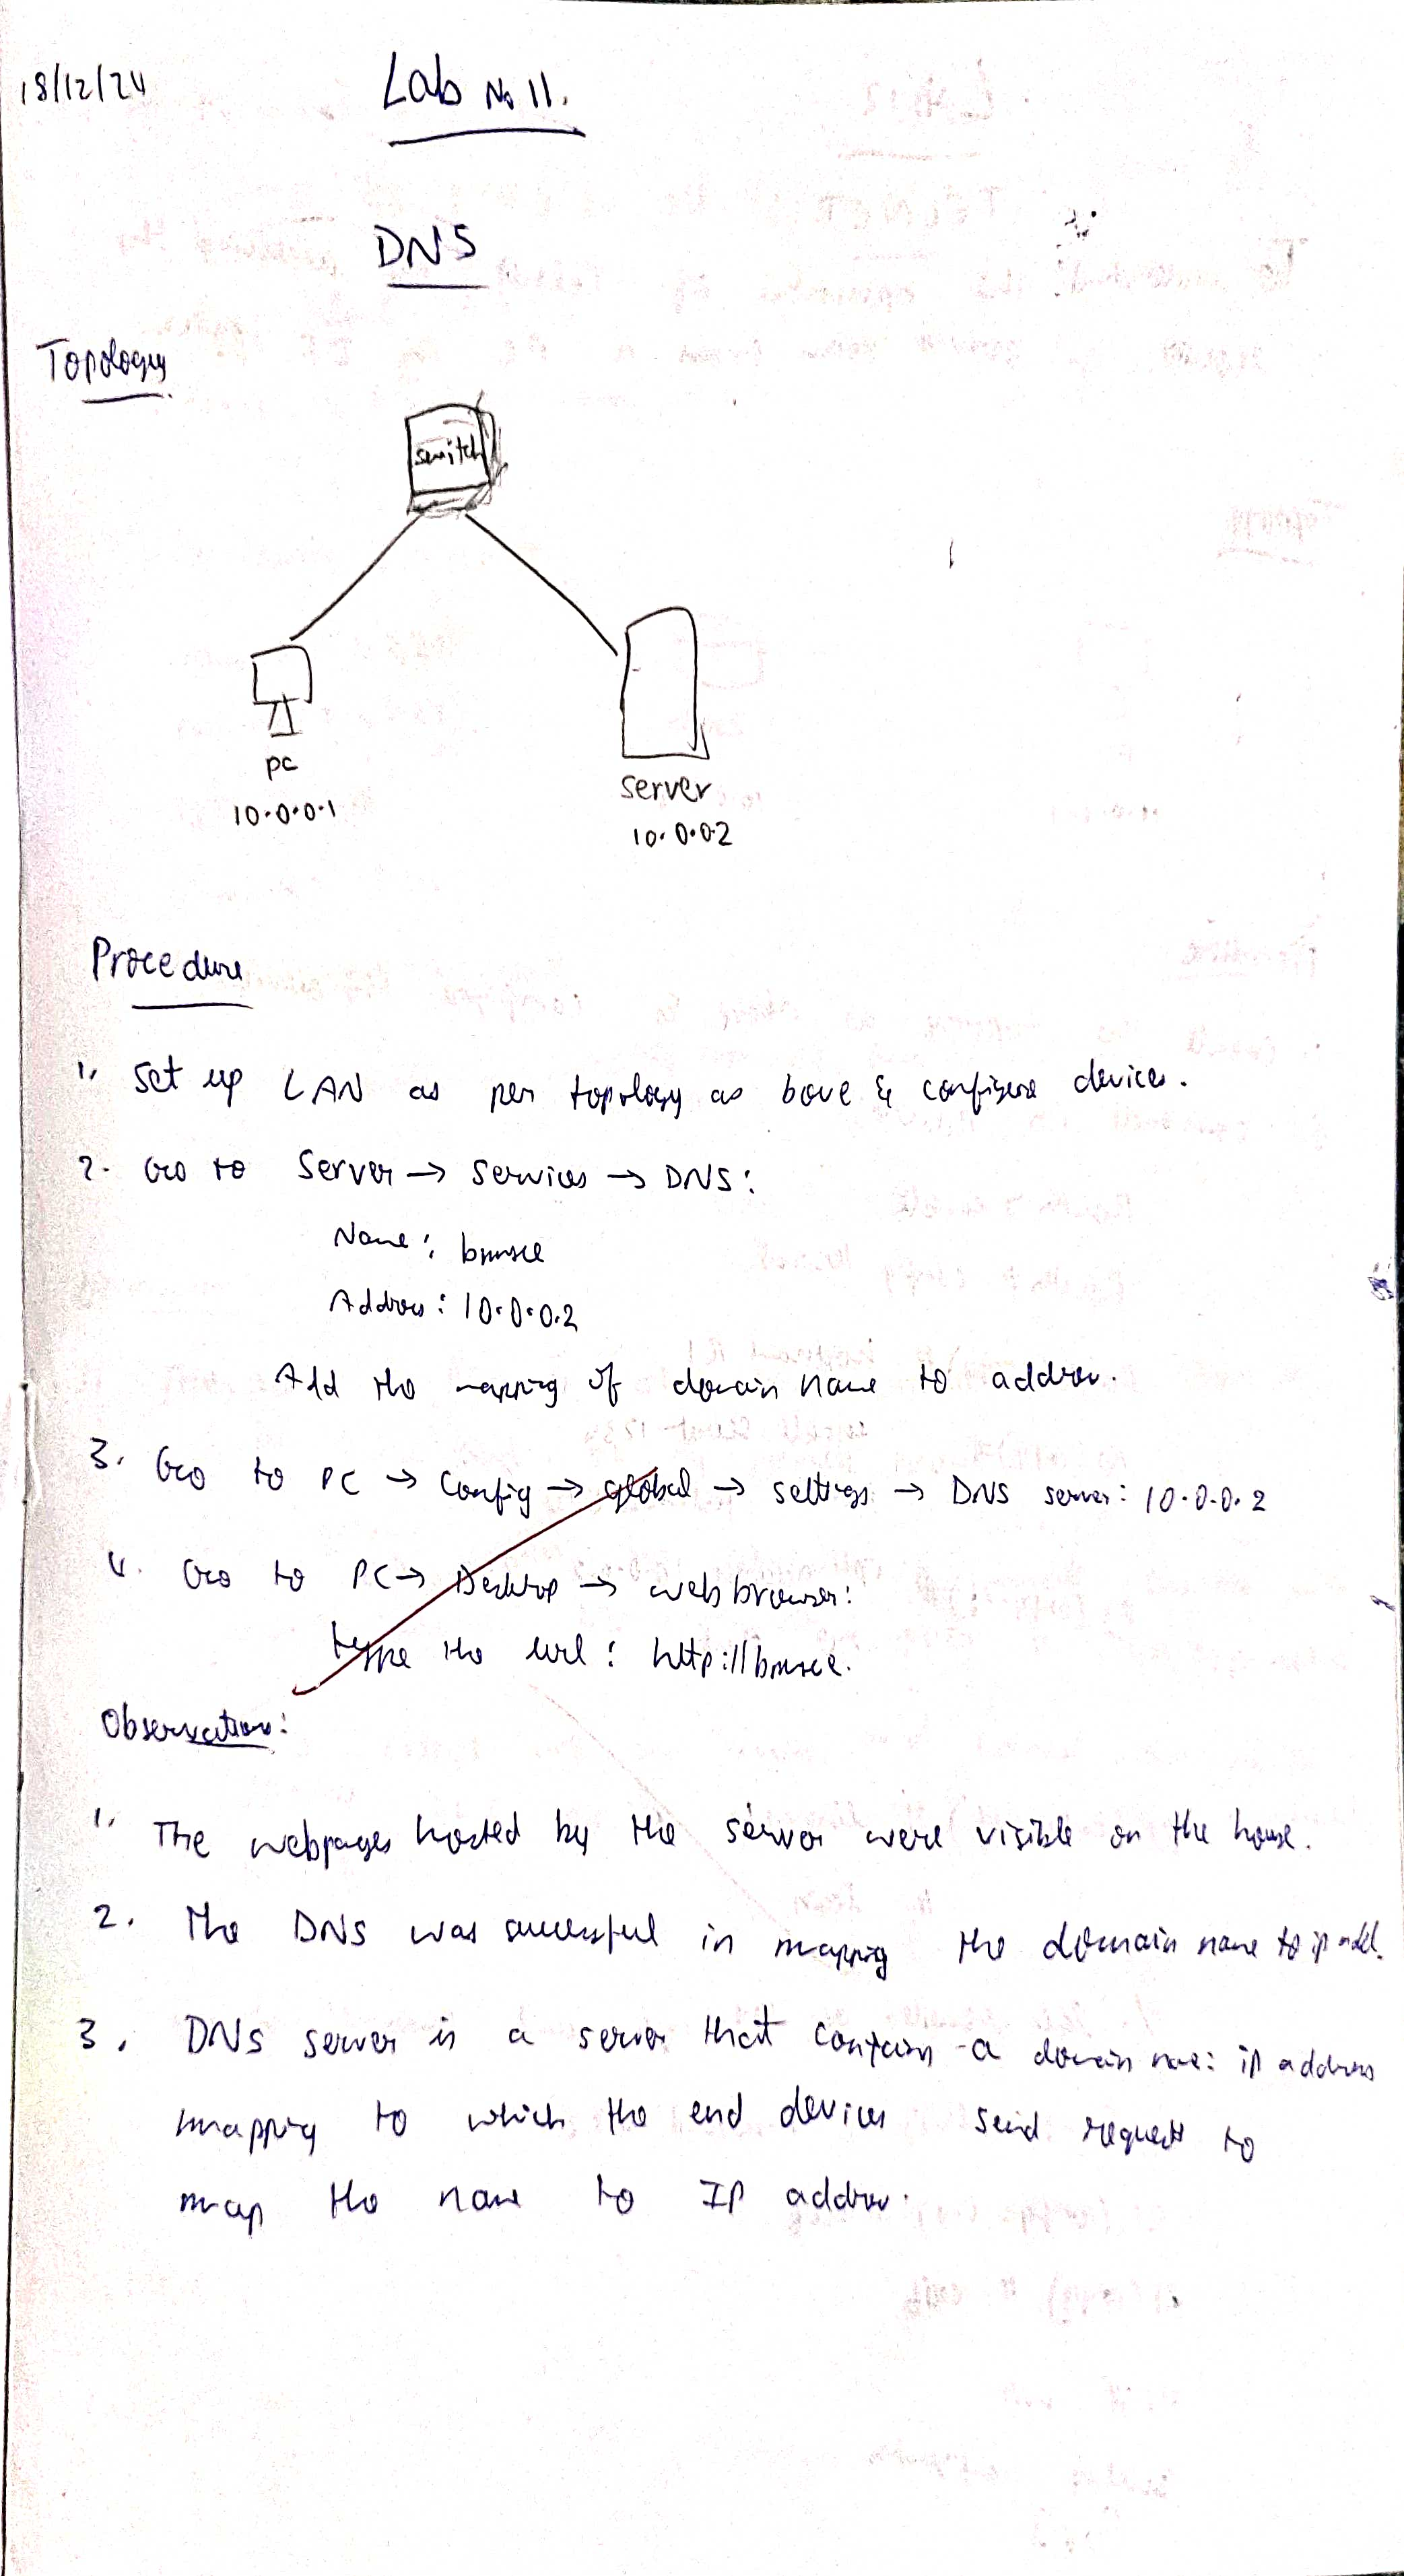 18/12/24
Lab No 11.
DNS
Topology
switch
pc
10.0.0.1
server
10.0.0.2
Procedure
1. Set up LAN as per topology as bove & configure devices.
2. Go to Server → Services → DNS:
Name: bmsce
Address: 10.0.0.2
Add the mapping of domain name to address.
3. Go to PC → Config → global → settings → DNS server: 10.0.0.2
4. Go to PC → Desktop → web browser:
type the url: http://bmsce.
Observation:
1. The webpages hosted by the server were visible on the house.
2. The DNS was successful in mapping the domain name to ip add.
3. DNS server is a server that contains a domain name: ip address
mapping to which the end devices send request to
map the name to IP address.